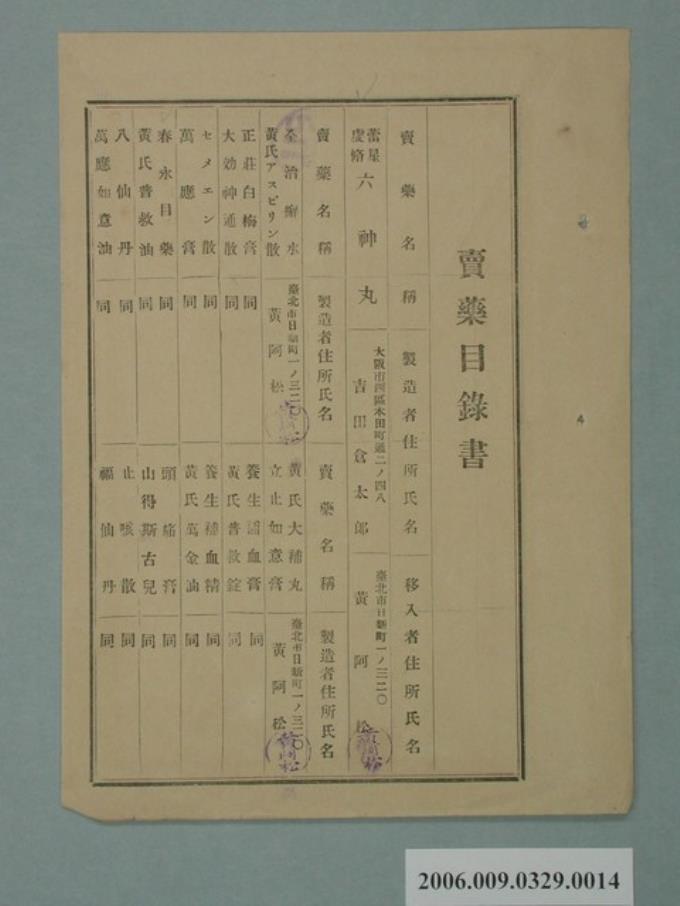 賣藥目錄書
賣藥名稱
製造者住所氏名
移入者住所氏名
蕾星
虔脩
六神丸
大阪市西區本田町通二ノ四八
吉田倉太郎
臺北市日新町一ノ三二〇
黃阿松
賣藥名稱
製造者住所氏名
賣藥名稱
製造者住所氏名
治癬水
黃氏アスピリン散
臺北市日新町一ノ三二〇
黃阿松
黃氏大補丸
立止如意膏
臺北市日新町一ノ三二〇
黃阿松
正莊白梅膏
同
養生謡血膏
同
大効神通散
同
黃氏普救錠
同
セメエン散
同
養生補血精
同
萬應膏
同
黃氏萬金油
同
春永目藥
同
頭痛膏
同
黃氏普救油
同
山得斯古兒
同
八仙丹
同
止咳散
同
萬應如意油
同
福仙丹
同
黃阿松
黃阿松
2006.009.0329.0014